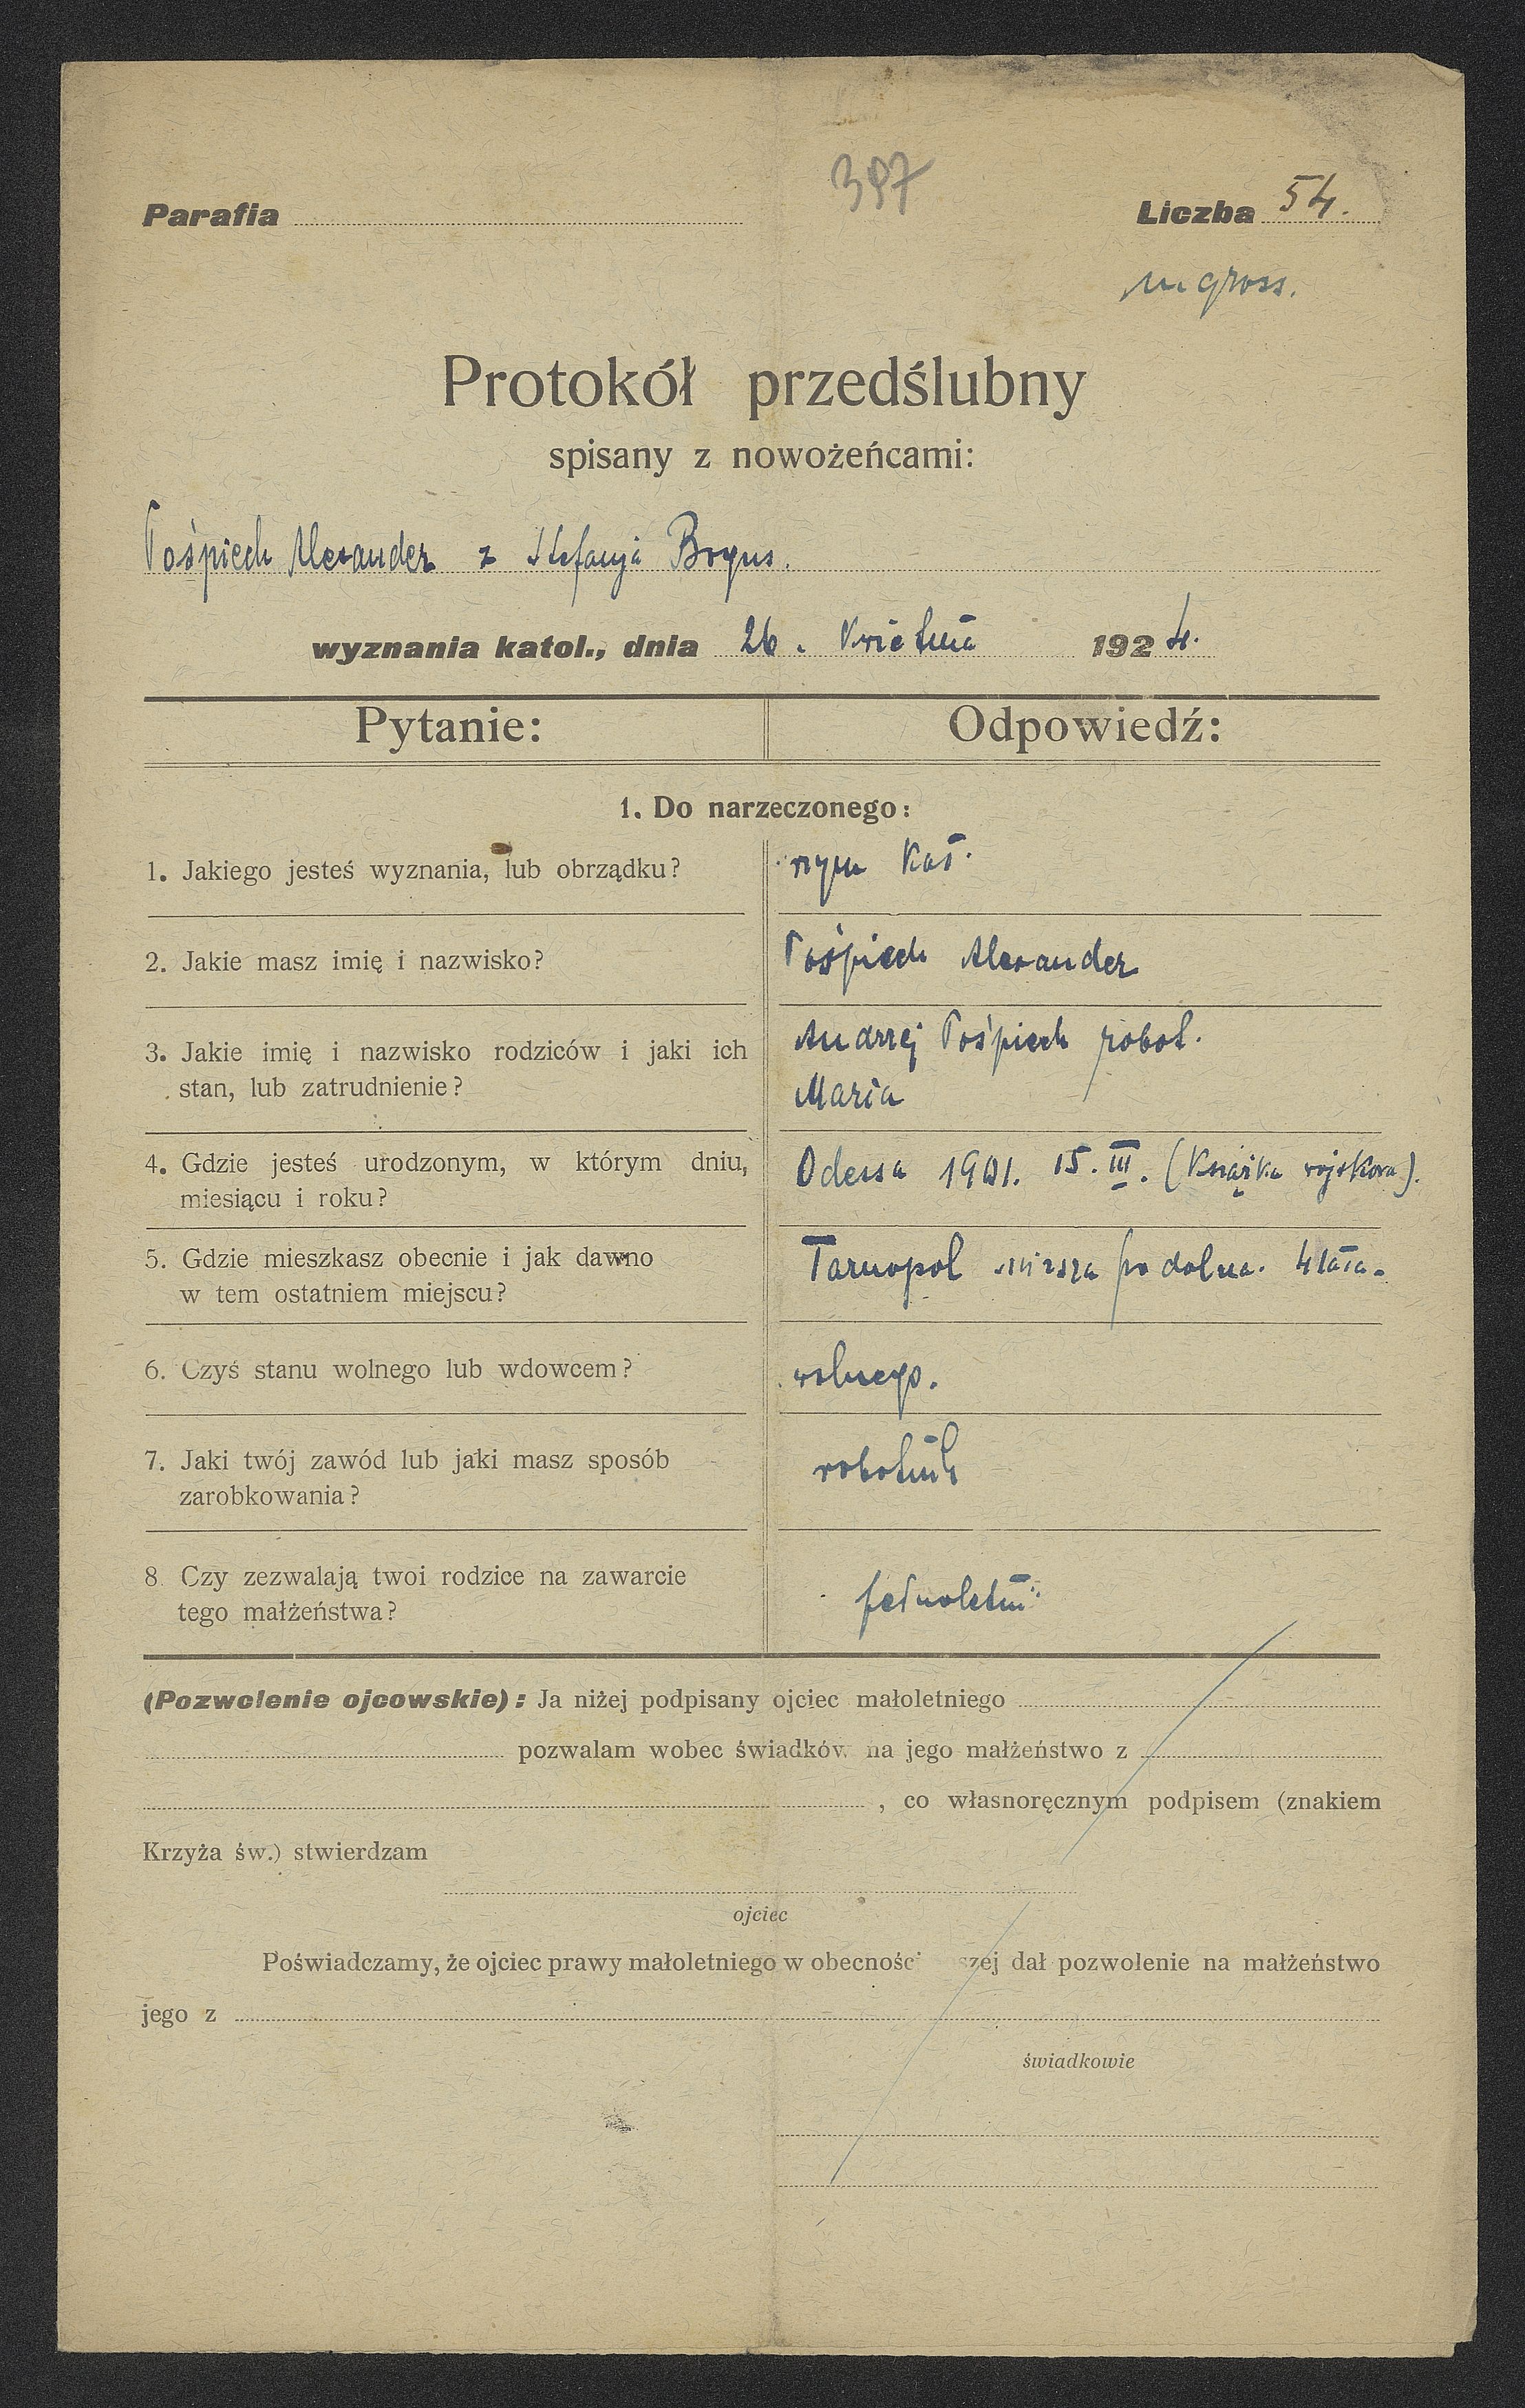 397
Parafia
Liczba 54.
ingross.
Protokół przedślubny
spisany z nowożeńcami:
Pośpiech Alexander z Stefanja Bogus.
wyznania katol., dnia 26. Kwietnia 1924.
Pytanie: Odpowiedź:
1. Do narzeczonego:
1. Jakiego jesteś wyznania, lub obrządku? rzym kat.
2. Jakie masz imię i nazwisko? Pośpiech Alexander
3. Jakie imię i nazwisko rodziców i jaki ich Andrzej Pośpiech robot.
stan, lub zatrudnienie? Maria
4. Gdzie jesteś urodzonym, w którym dniu, Odessa 1901. 15. III. (Książka wojskowa).
miesiącu i roku?
5. Gdzie mieszkasz obecnie i jak dawno Tarnopol podolna. 4 lata.
w tem ostatniem miejscu?
6. Czyś stanu wolnego lub wdowcem? wolnego.
7. Jaki twój zawód lub jaki masz sposób robotnik
zarobkowania?
8. Czy zezwalają twoi rodzice na zawarcie pełnoletni
tego małżeństwa?
(Pozwolenie ojcowskie): Ja niżej podpisany ojciec małoletniego
pozwalam wobec świadków na jego małżeństwo z
, co własnoręcznym podpisem (znakiem
Krzyża św.) stwierdzam
ojciec
Poświadczamy, że ojciec prawy małoletniego w obecności szej dał pozwolenie na małżeństwo
jego z
świadkowie